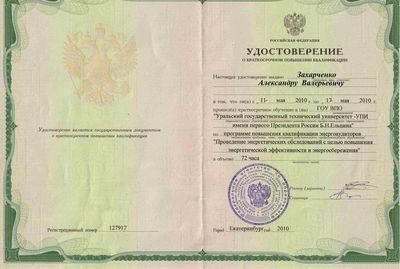 Удостоверение является государственным документом
о краткосрочном повышении квалификации
Регистрационный номер 127917
РОССИЙСКАЯ ФЕДЕРАЦИЯ
УДОСТОВЕРЕНИЕ
О КРАТКОСРОЧНОМ ПОВЫШЕНИИ КВАЛИФИКАЦИИ
Настоящее удостоверение выдано Захарченко
Александру Валерьевичу
в том, что он(а) с 11 мая 2010 г. по 13 мая 2010 г.
прошел(а) краткосрочное обучение в (на) ГОУ ВПО
"Уральский государственный технический университет -УПИ
имени первого Президента России Б.Н.Ельцина"
по программе повышения квалификации энергоаудиторов
"Проведение энергетических обследований с целью повышения
энергетической эффективности и энергосбережения"
в объеме 72 часа
Ректор (директор)
Секретарь
Город Екатеринбург год 2010